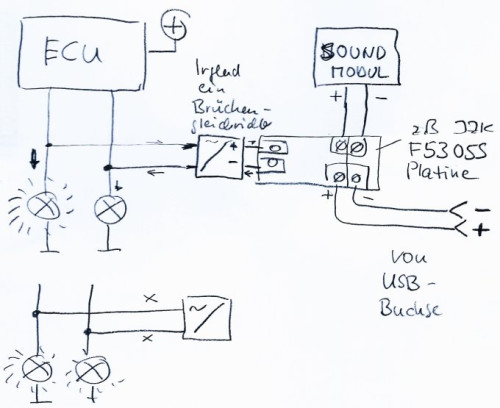 ECU
+
SOUND
MODUL
+ -
Irgend
ein
Brücken-
gleichrichter
~ + -
zB
F5305S
Platine
+ -
-
+
von
USB-
Buchse
x
~
x